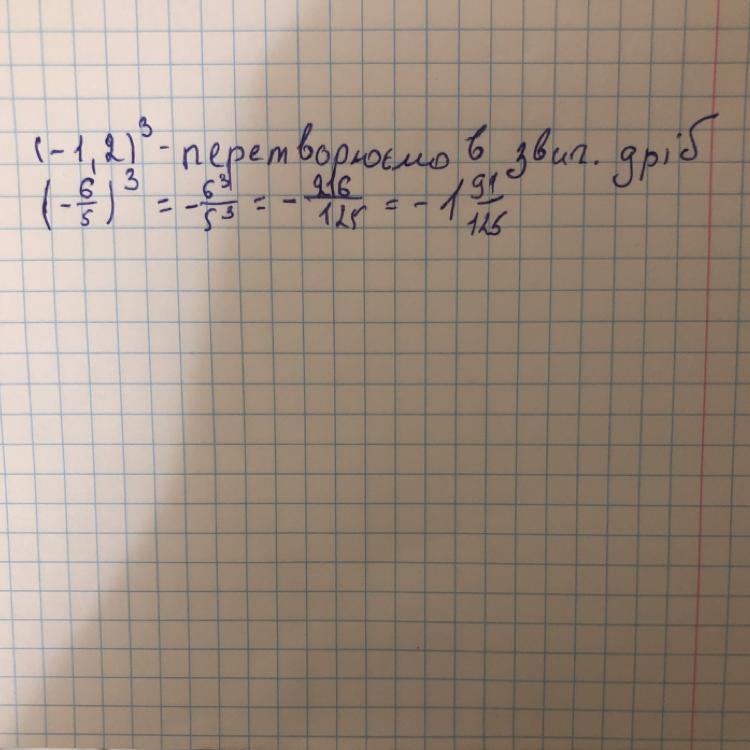 (-1,2)³ - перетворюємо в звич. дріб
(-6/5)³ = -6³/5³ = -216/125 = -1 91/125